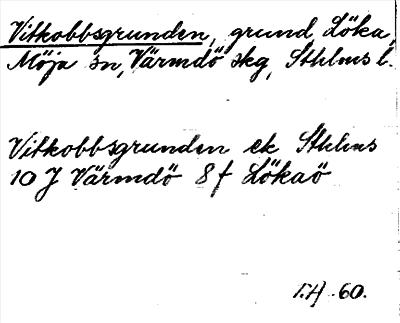 Vitkobbsgrunden, grund, Löka,
Möja sn, Värmdö skg, Sthlms l.
Vitkobbsgrunden ek Sthlms
10 J Värmdö 8 f Lökaö
T.H. 60.